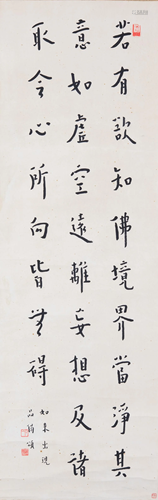 若有欲知佛境界當淨其
意如虛空遠離妄想及諸
取令心所向皆無碍
如來出現
品